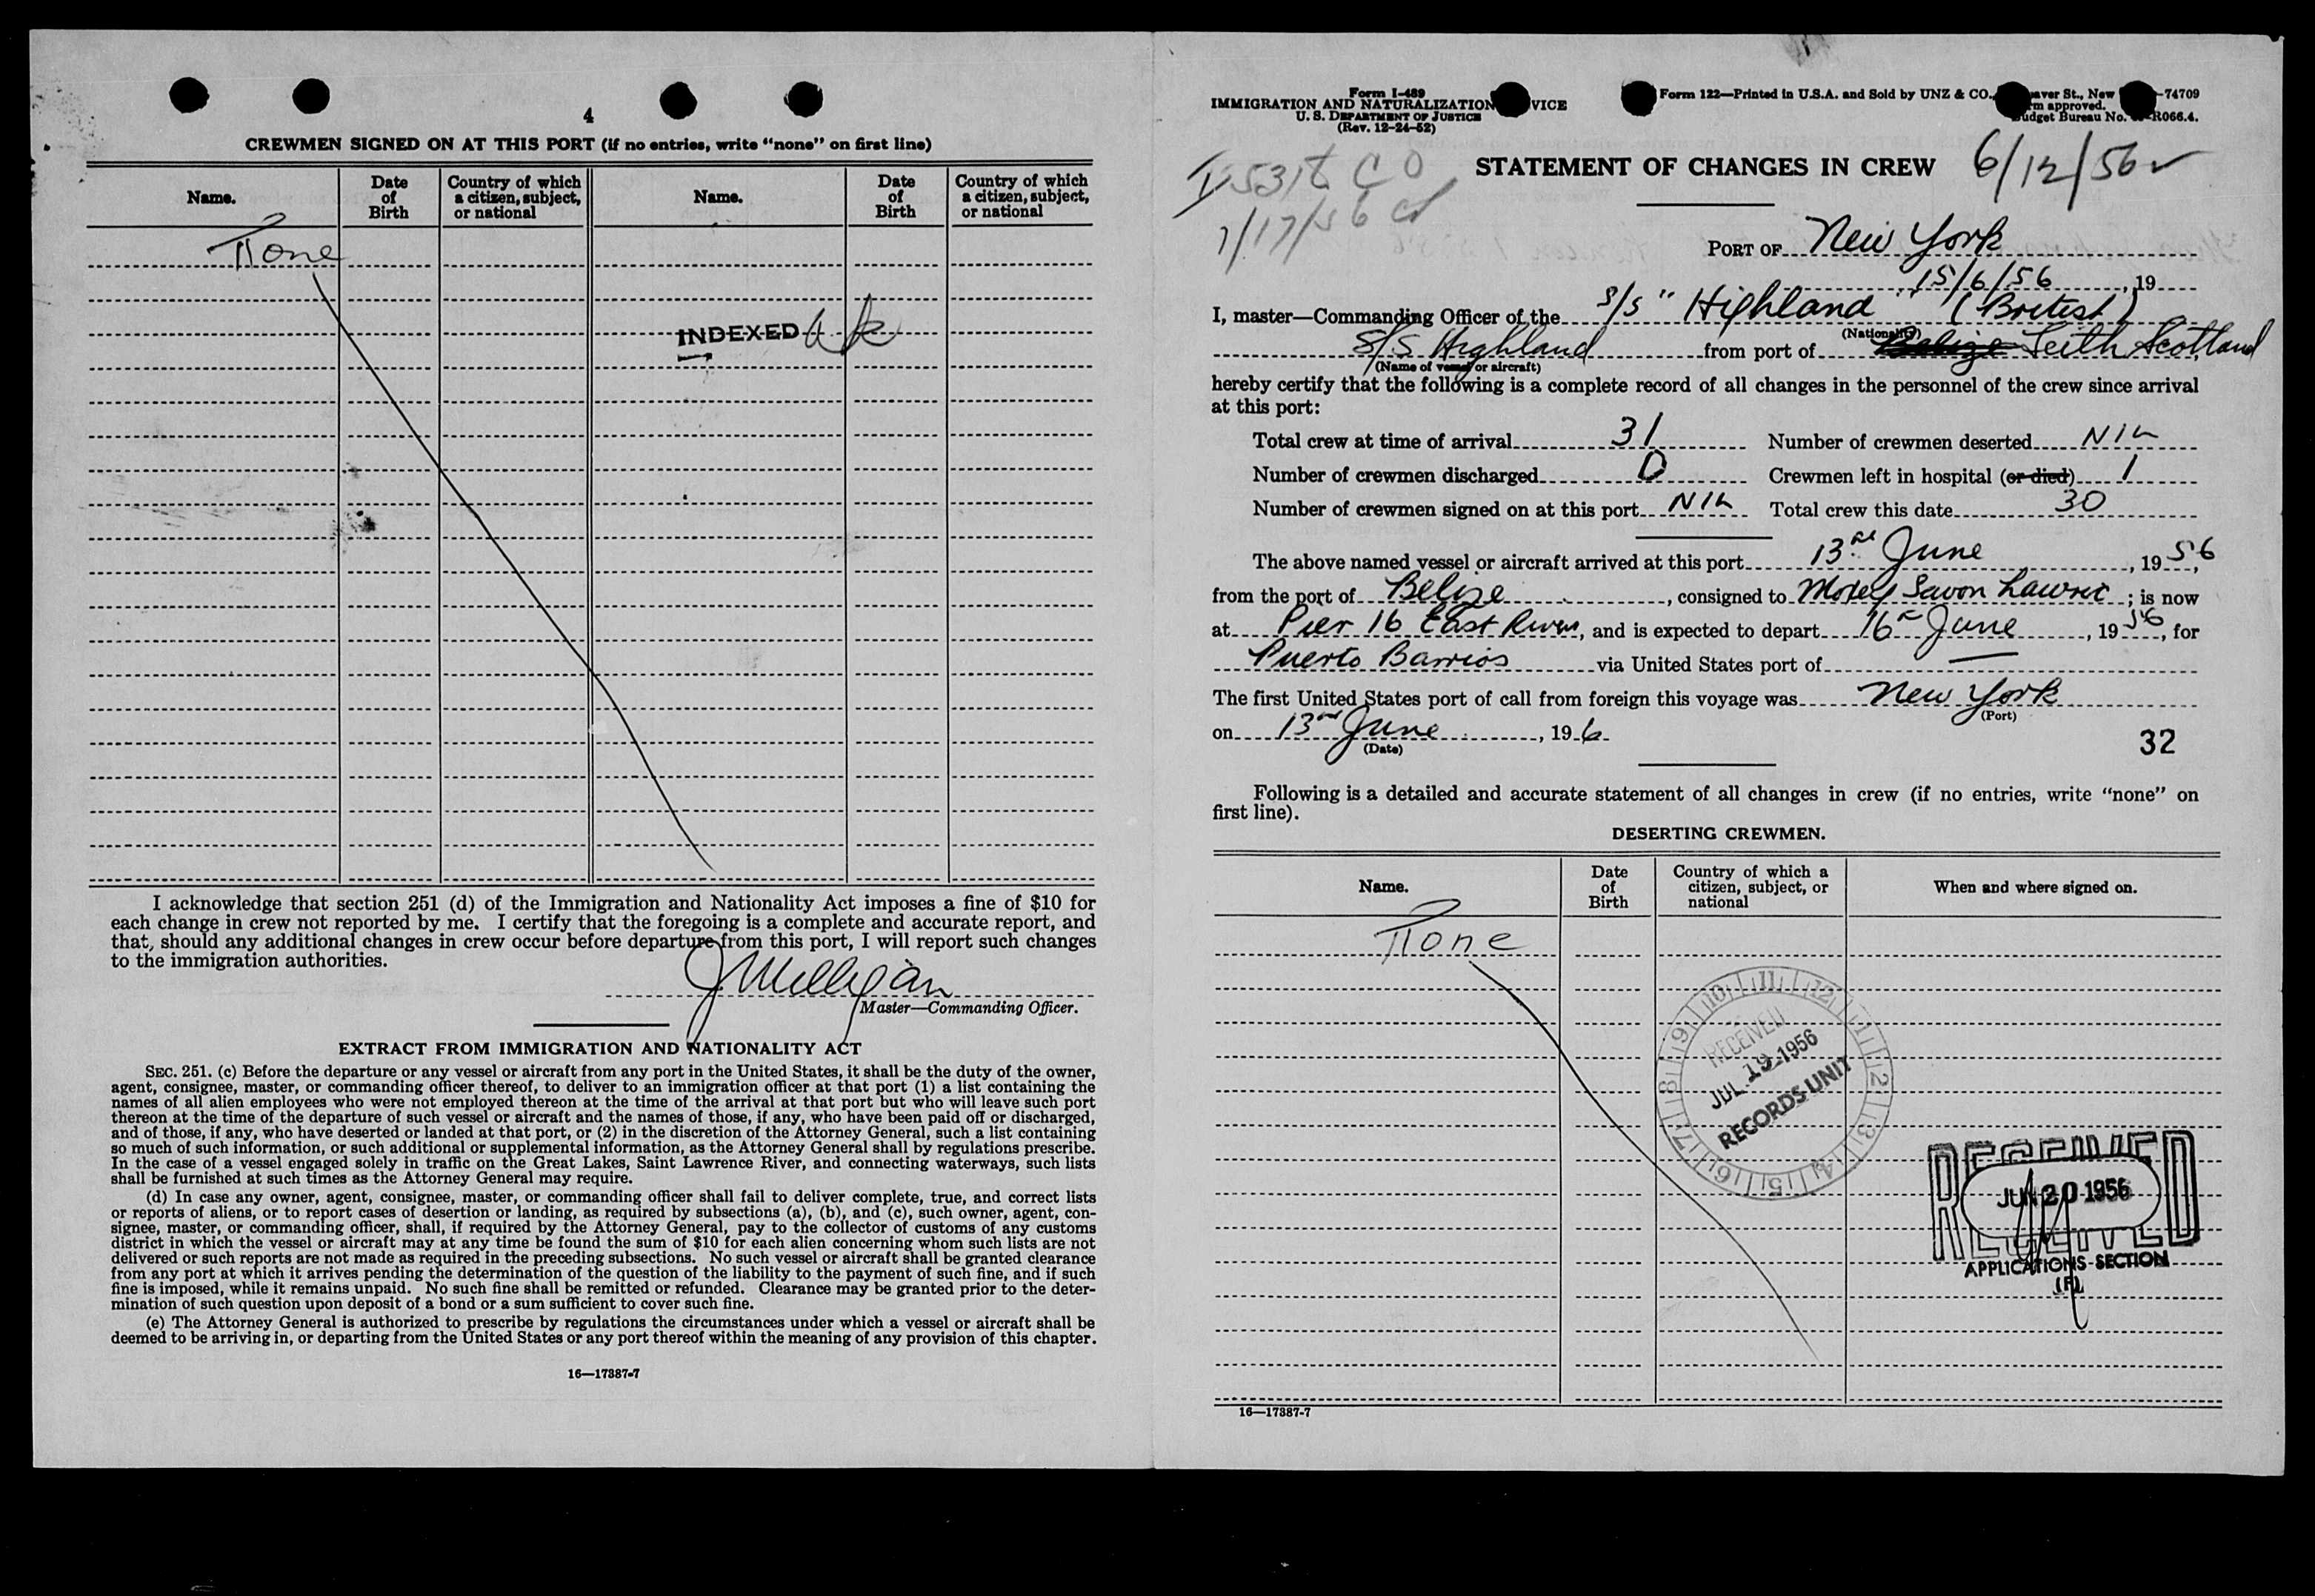 4
CREWMEN SIGNED ON AT THIS PORT (if no entries, write "none" on first line)
Name. Date of Birth Country of which a citizen, subject, or national Name. Date of Birth Country of which a citizen, subject, or national
None
INDEXED
I acknowledge that section 251 (d) of the Immigration and Nationality Act imposes a fine of $10 for
each change in crew not reported by me. I certify that the foregoing is a complete and accurate report, and
that, should any additional changes in crew occur before departure from this port, I will report such changes
to the immigration authorities.
J Milligan
Master—Commanding Officer.
EXTRACT FROM IMMIGRATION AND NATIONALITY ACT
SEC. 251. (c) Before the departure or any vessel or aircraft from any port in the United States, it shall be the duty of the owner,
agent, consignee, master, or commanding officer thereof, to deliver to an immigration officer at that port (1) a list containing the
names of all alien employees who were not employed thereon at the time of the arrival at that port but who will leave such port
thereon at the time of the departure of such vessel or aircraft and the names of those, if any, who have been paid off or discharged,
and of those, if any, who have deserted or landed at that port, or (2) in the discretion of the Attorney General, such a list containing
so much of such information, or such additional or supplemental information, as the Attorney General shall by regulations prescribe.
In the case of a vessel engaged solely in traffic on the Great Lakes, Saint Lawrence River, and connecting waterways, such lists
shall be furnished at such times as the Attorney General may require.
(d) In case any owner, agent, consignee, master, or commanding officer shall fail to deliver complete, true, and correct lists
or reports of aliens, or to report cases of desertion or landing, as required by subsections (a), (b), and (c), such owner, agent, con-
signee, master, or commanding officer, shall, if required by the Attorney General, pay to the collector of customs of any customs
district in which the vessel or aircraft may at any time be found the sum of $10 for each alien concerning whom such lists are not
delivered or such reports are not made as required in the preceding subsections. No such vessel or aircraft shall be granted clearance
from any port at which it arrives pending the determination of the question of the liability to the payment of such fine, and if such
fine is imposed, while it remains unpaid. No such fine shall be remitted or refunded. Clearance may be granted prior to the deter-
mination of such question upon deposit of a bond or a sum sufficient to cover such fine.
(e) The Attorney General is authorized to prescribe by regulations the circumstances under which a vessel or aircraft shall be
deemed to be arriving in, or departing from the United States or any port thereof within the meaning of any provision of this chapter.
16—17387-7
Form I-489
IMMIGRATION AND NATURALIZATION VICE
U. S. DEPARTMENT OF JUSTICE
(Rev. 12-24-52)
Form 122—Printed in U.S.A. and Sold by UNZ & CO., aver St., New -74709
m approved.
udget Bureau No. R066.4.
STATEMENT OF CHANGES IN CREW 6/12/56
7/17/56
PORT OF New York
15/6/56, 19
I, master—Commanding Officer of the S/S "Highland" (British)
(Nationality)
S/S Highland from port of Belize Leith Scotland
(Name of vessel or aircraft)
hereby certify that the following is a complete record of all changes in the personnel of the crew since arrival
at this port:
Total crew at time of arrival 31 Number of crewmen deserted NIL
Number of crewmen discharged 0 Crewmen left in hospital (or died) 1
Number of crewmen signed on at this port NIL Total crew this date 30
The above named vessel or aircraft arrived at this port 13 June, 1956,
from the port of Belize, consigned to; is now
at Pier 16 East River, and is expected to depart 16 June, 1956, for
Puerto Barrios via United States port of —
The first United States port of call from foreign this voyage was New York
(Port)
on 13 June, 196
(Date)
32
Following is a detailed and accurate statement of all changes in crew (if no entries, write "none" on
first line).
DESERTING CREWMEN.
Name. Date of Birth Country of which a citizen, subject, or national When and where signed on.
None
10 11 12 1 2 3 4 5 6 7 8 9
RECEIVED
JUL 19 1956
RECORDS UNIT
RECEIVED
JUN 20 1956
APPLICATIONS SECTION
16—17387-7